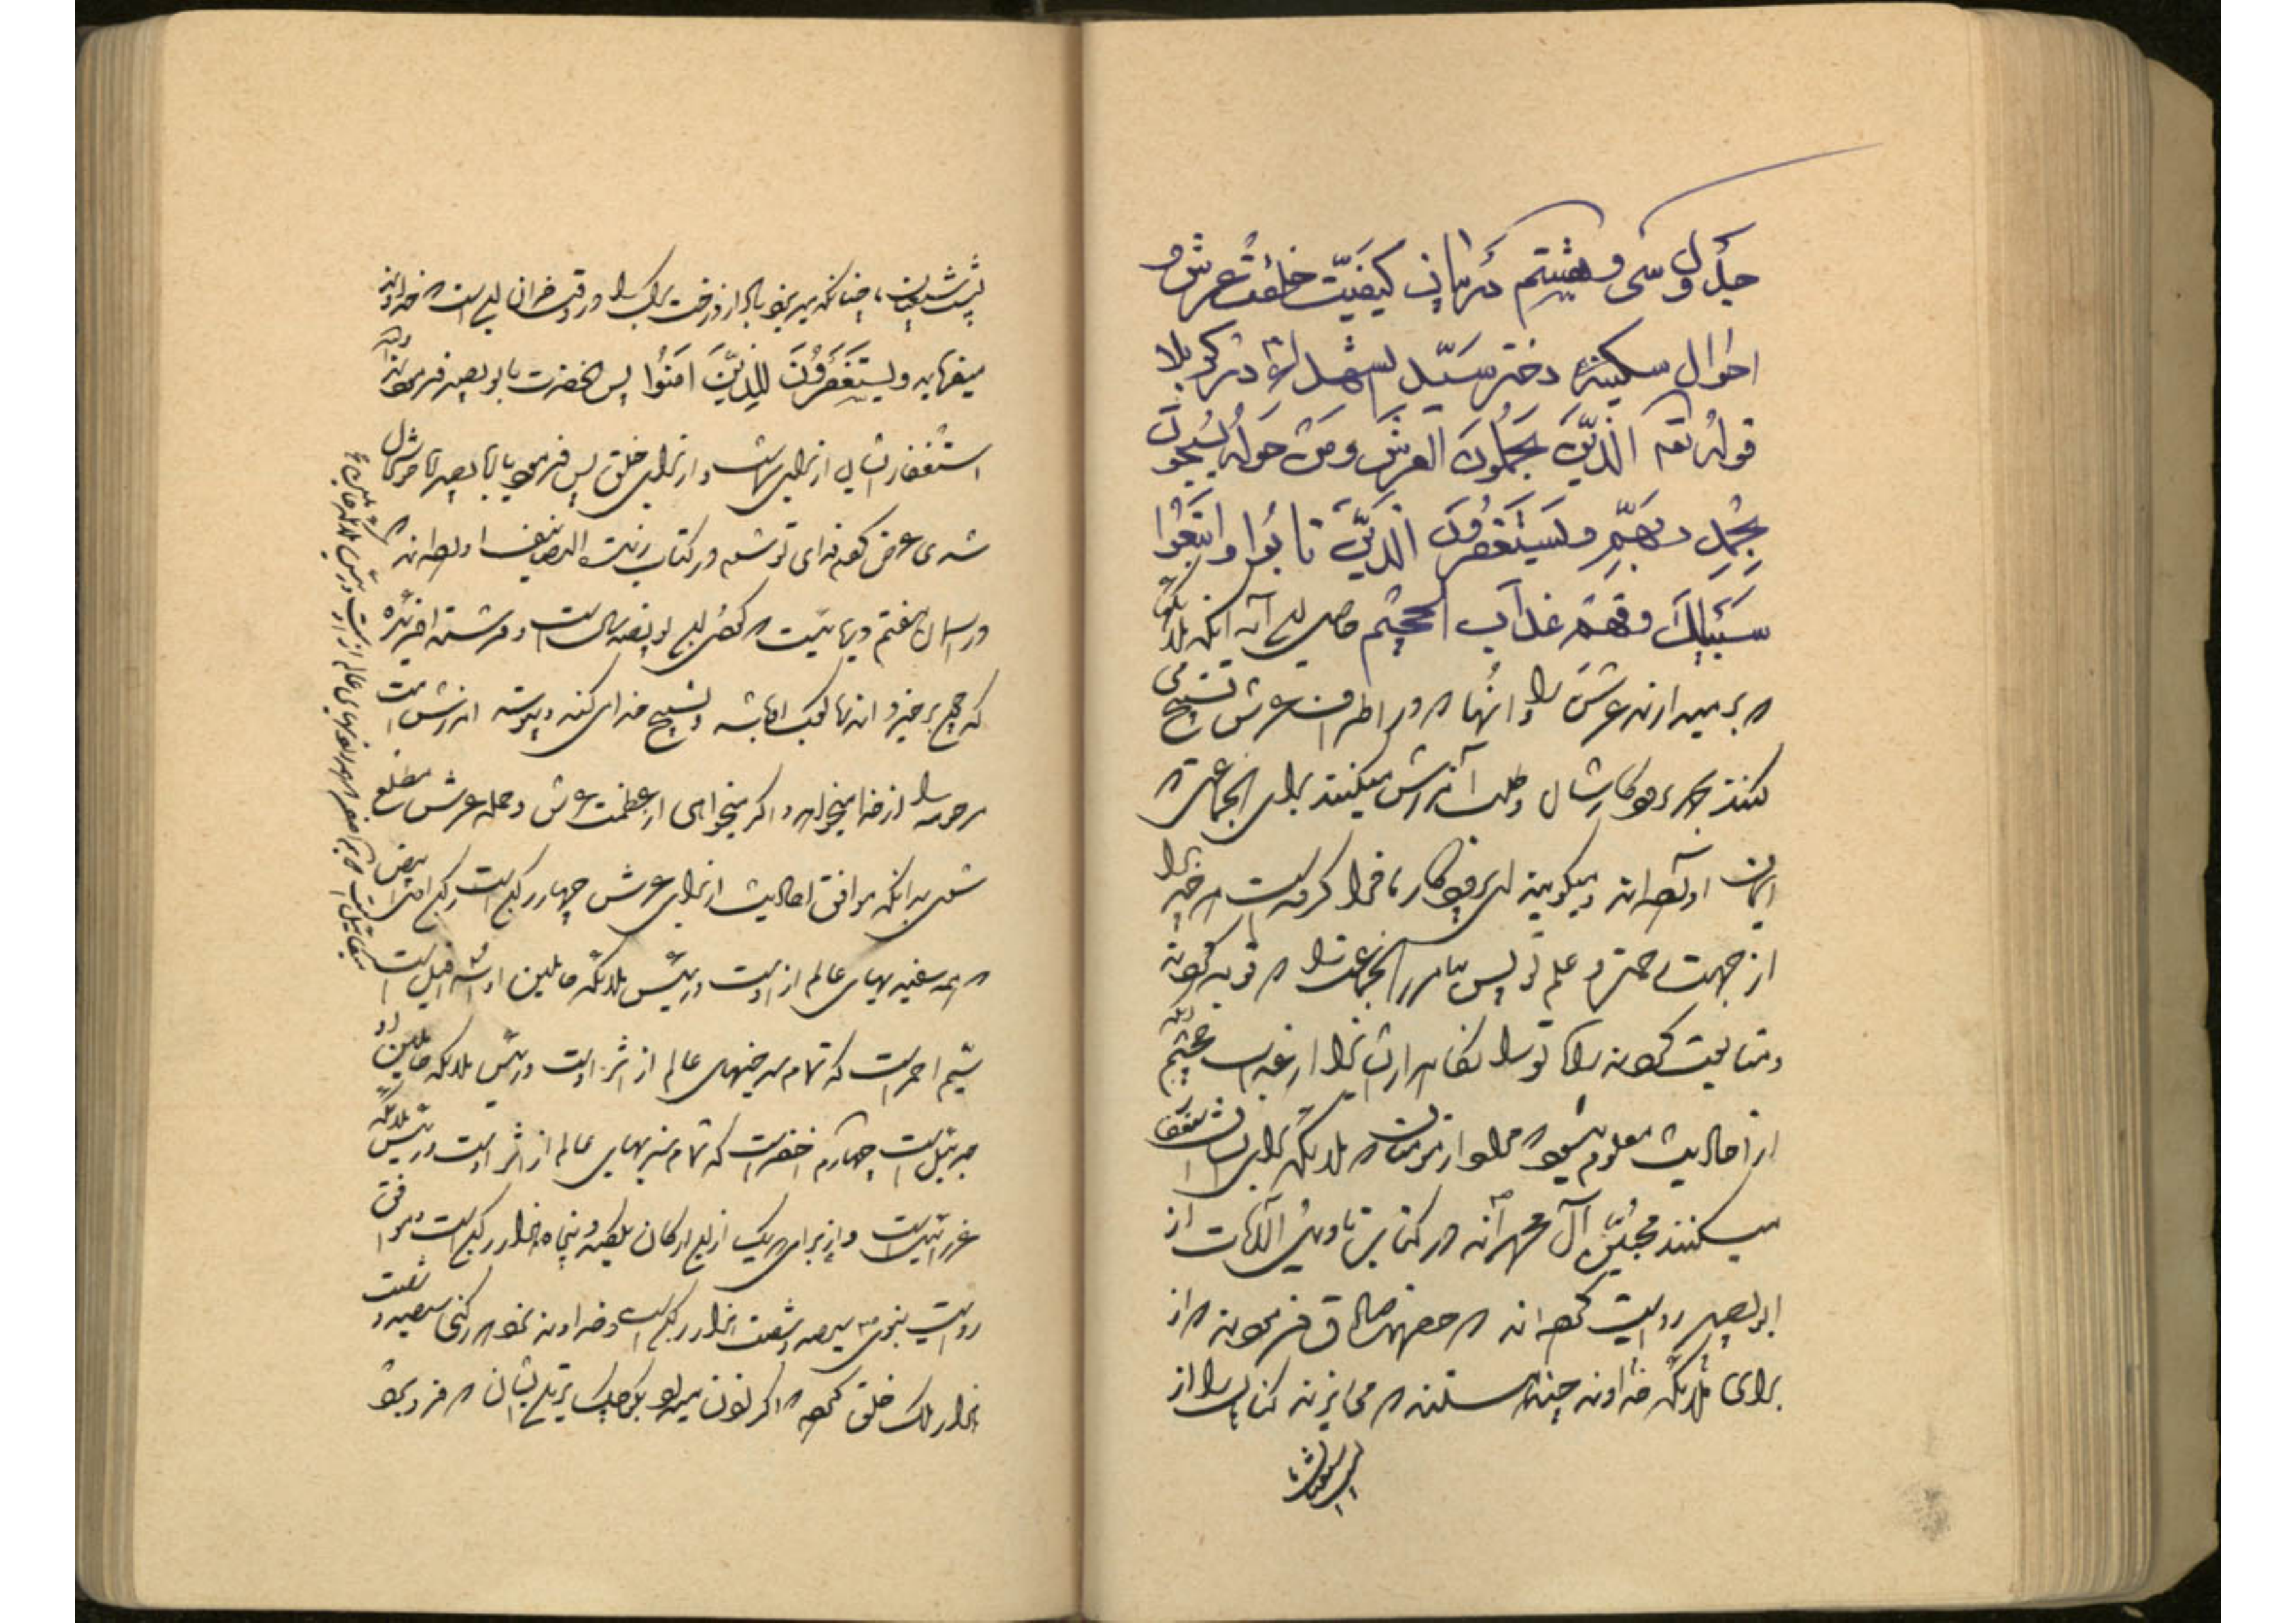 جدول سی و هشتم در بیان کیفیت خلقت عرش و
احوال سکینه دختر سید الشهداء در کربلا
قوله تعه الَّذِینَ یَحمِلُونَ العَرشَ وَمَن حَولَهُ یُسَبِّحُونَ
بِحَمدِ رَبِّهِم وَیَستَغفِرُونَ الَّذِینَ تابُوا وَاتَّبَعُوا
سَبِیلَکَ وَقِهِم عَذابَ الجَحِیم حاصل این آیه آنکه ملائکه
که برمیدارند عرش را و آنها که در اطراف عرش تسبیح می
کنند بحمد پروردگارشان و طلب آمرزش میکنند برای آنجماعتی که
ایمان آورده‌اند و میگویند ای پروردگار ما فرا گرفته است هر چیز را
از جهت رحمت و علم تو پس بیامرز آنجماعت را که توبه کردند
و متابعت کردند راه تو را نگاه دار ایشان را از عذاب جحیم
از احادیث معلوم میشود که مراد از مؤمنان که ملائکه برای ایشان استغفار
میکنند محبین آل محمدند در کتاب تاویل الآیات از
ابوبصیر روایت کرده‌اند که حضرت صادق فرمودند که از
برای ملائکه خداوند چند هستند که میریزند گناهان را از
پشت شیعیان ما
پشت شیعیان ما چنانکه میریزد باد از درخت برگ را در وقت خزان این است که خداوند
میفرماید ویستَغفِرُونَ لِلَّذِینَ آمَنُوا پس آنحضرت بابوبصیر فرمودند که
استغفار ایشان از برای شماست و از برای خلق پس فرمود یا ابا بصیر آیا خوشحال
شدی عرض کردم فدای تو شوم در کتاب زینت المصابیف آورده‌اند که
در آسمان هفتم دریائیست که عمق آن پانصد سال است و فرشته آفریده
که چون برخیزد آن دریا تا کعب او باشد و تسبیح خدای کند و پیوسته آمرزش امت
مرحومه را از خدا میخواهد و اگر میخواهی از عظمت عرش و حمله عرش مطلع
شوی بدانکه موافق احادیث از برای عرش چهار رکن است رکن اول ابیض
که همه سفیدیهای عالم از اوست و رئیس ملائکه حاملین او اسرافیل است
سیم احمر است که تمام سرخیهای عالم از اثر اوست و رئیس ملائکه حاملین او
جبرئیل است چهارم اخضر است که تمام سبزیهای عالم از اثر اوست و رئیس ملائکه
عزرائیل است و از برای هر یک از این ارکان یکصد و پنجاه هزار رکن است و موافق
روایت نبوی ص سیصد و شصت هزار رکن است و خداوند نزد هر رکنی سیصد و شصت
هزار ملک خلق کرده که اگر اذن میداد بکوچک‌ترین ایشان که فرو برد